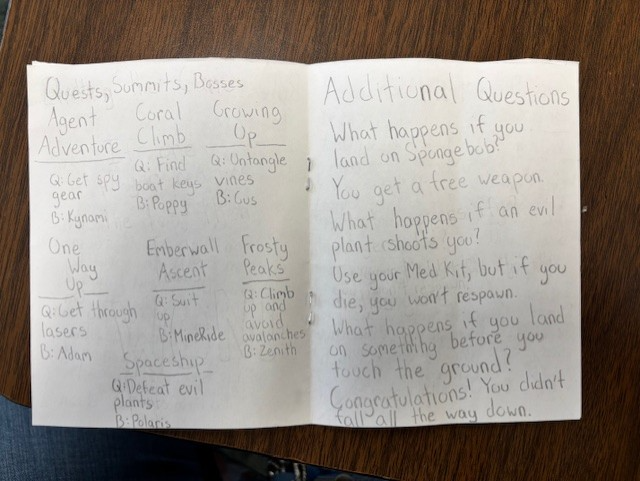 Quests, Summits, Bosses
Agent
Adventure
Q: Get spy
gear
B: Kynami
Coral
Climb
Q: Find
boat keys
B: Poppy
Growing
Up
Q: Untangle
vines
B: Gus
One
Way
Up
Q: Get through
lasers
B: Adam
Emberwall
Ascent
Q: Suit
up
B: MineRide
Frosty
Peaks
Q: Climb
up and
avoid
avalanches
B: Zenith
Spaceship
Q: Defeat evil
plants
B: Polaris
Additional Questions
What happens if you
land on Spongebob?
You get a free weapon.
What happens if an evil
plant shoots you?
Use your Med Kit, but if you
die, you won't respawn.
What happens if you land
on something before you
touch the ground?
Congratulations! You didn't
fall all the way down.